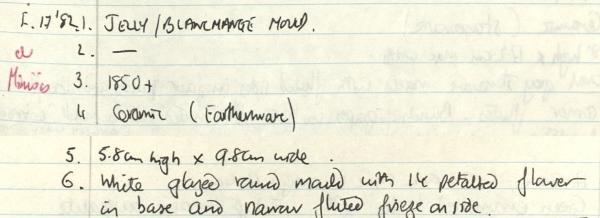 E.17'82.1. JELLY/BLANCMANGE MOULD.
2. —
3. 1850+
4 Ceramic (Earthenware)
5. 5.8cm high x 9.8cm wide.
6. White glazed round mould with 14 petalled flower
in base and narrow fluted frieze on side.